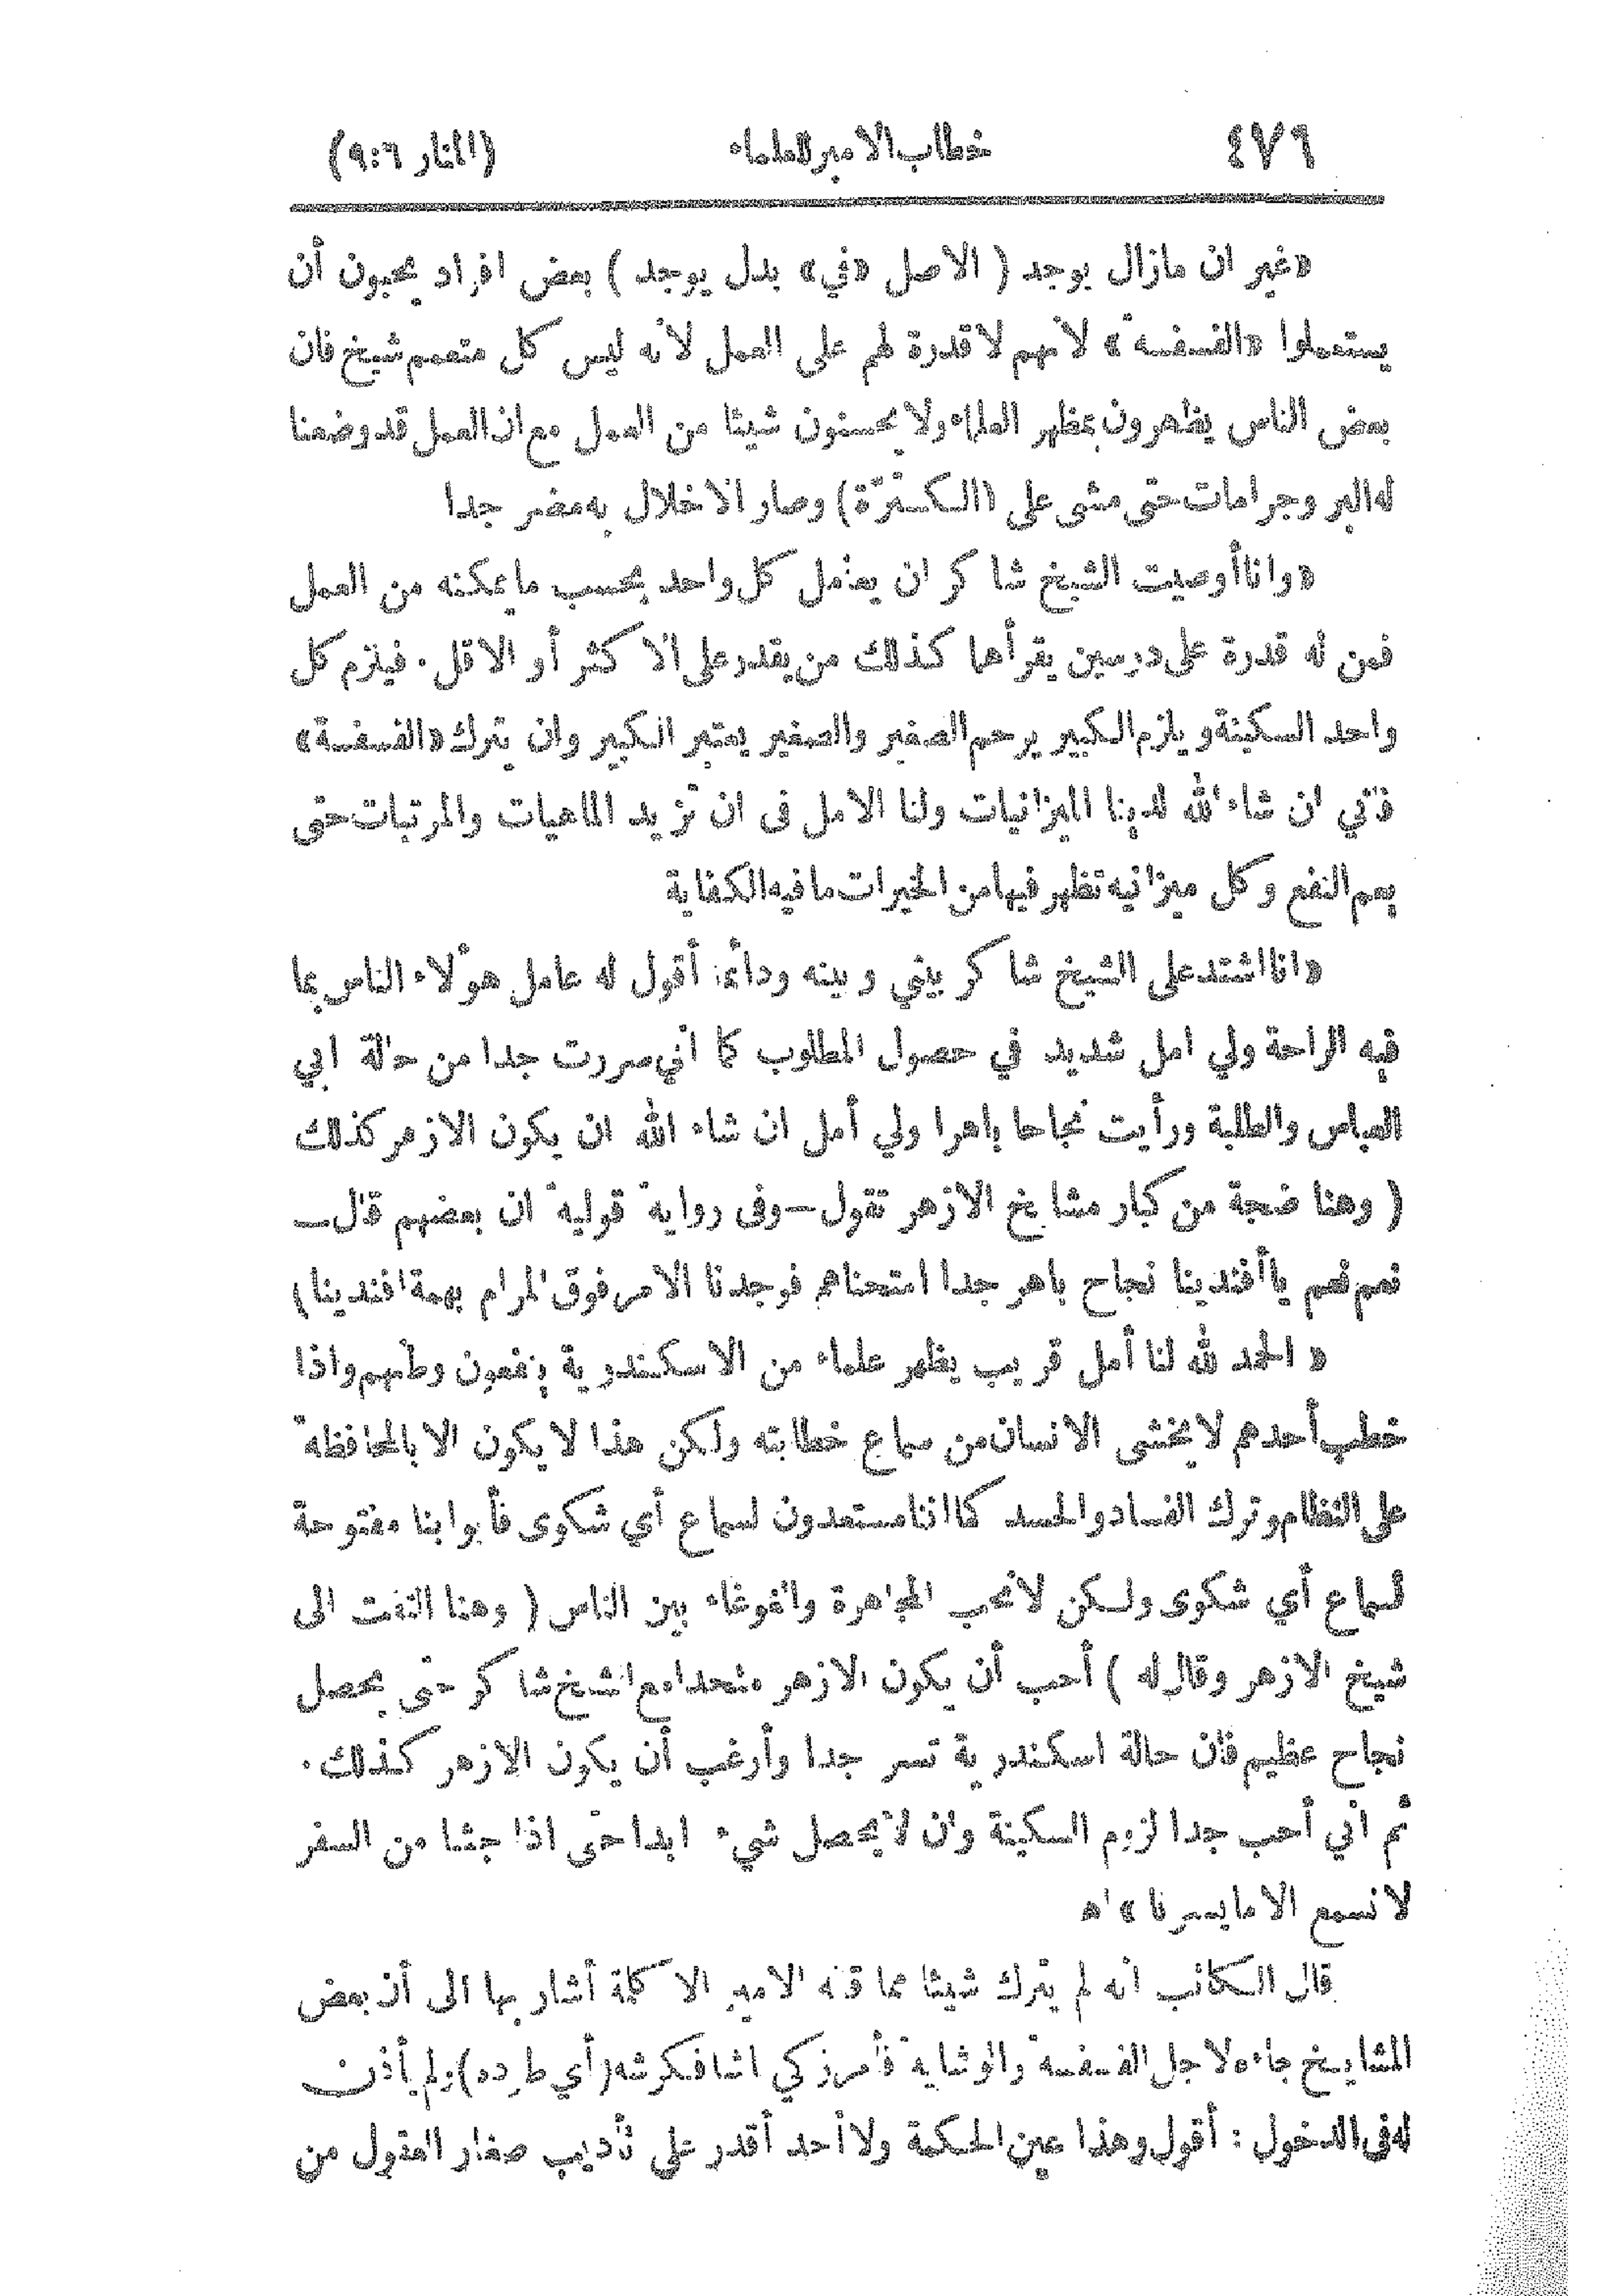 ٤٧٦ خطاب الامير للعلماء (المنار ٩:٦)
«غير ان مازال يوجد ( الاصل «في» بدل يوجد ) بعض افراد يحبون أن
يستعملوا «الفسفسة» لانهم لا قدرة لهم على العمل لأنه ليس كل متعمم شيخ فان
بعض الناس يظهرون بمظهر العلماء ولا يحسنون شيئا من العمل مع ان العمل قد وضعنا
له البر وجرامات حتى مشى على (السكترة) وصار الاخلال به مضر جدا
«وانا أوصيت الشيخ شاكر ان يعامل كل واحد بحسب ما يمكنه من العمل
فمن له قدرة على درسين يقرأهما كذلك من يقدر على الاكثر أو الاقل . فيلزم كل
واحد السكينة ويلزم الكبير يرحم الصغير والصغير يعتبر الكبير وان يترك «الفسفسة»
فآتي ان شاء الله لدينا الميزانيات ولنا الامل فى ان تزيد الماهيات والمرتبات حتى
يعم النفع وكل ميزانيه تظهر فيها من الخيرات ما فيه الكفاية
«انا اشتد على الشيخ شاكر بيني وبينه ودائما أقول له عامل هؤلاء الناس بما
فيه الراحة ولي امل شديد في حصول المطلوب كما اني سررت جدا من حالة ابي
العباس والطلبة ورأيت نجاحا باهرا ولي أمل ان شاء الله ان يكون الازهر كذلك
( وهنا ضجة من كبار مشايخ الازهر تقول ــ وفى رواية قولية ان بعضهم قال ــ
نعم نعم يا أفندينا نجاح باهر جدا امتحناهم فوجدنا الامر فوق المرام بهمة افندينا )
« الحمد لله لنا أمل قريب يظهر علماء من الاسكندرية ينفعون وطنهم واذا
خطب أحدهم لا يخشى الانسان من سماع خطابته ولكن هذا لا يكون الا بالمحافظة
على النظام وترك الفساد والحسد كما اننا مستعدون لسماع أي شكوى فأبوابنا مفتوحة
لسماع أي شكوى ولكن لا نحب المجاهرة والغوغاء بين الناس ( وهنا التفت الى
شيخ الازهر وقال له ) أحب أن يكون الازهر متحدا مع الشيخ شاكر حتى يحصل
نجاح عظيم فان حالة اسكندرية تسر جدا وأرغب أن يكون الازهر كذلك .
ثم اني أحب جدا لزوم السكينة وان لا يحصل شيء ابدا حتى اذا جئنا من السفر
لا نسمع الا ما يسرنا » اه
قال الكاتب انه لم يترك شيئا مما قاله الامير الا كلمة أشار بها الى أن بعض
المشايخ جاءه لاجل الفسفسة والوشاية فأمر زكي اشا فكرشه (أي طرده) ولم يأذن
له فى الدخول : أقول وهذا عين الحكمة ولا أحد أقدر على تأديب صغار العقول من